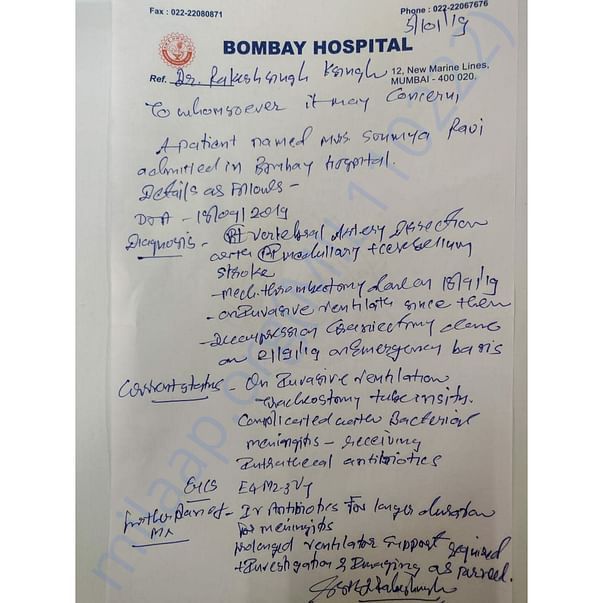 Fax : 022-22080871
Phone : 022-22067676
5/01/19
BOMBAY HOSPITAL
12, New Marine Lines,
MUMBAI - 400 020.
Ref. Dr. Rakeshsingh K singh
To whomsoever it may concern,
A patient named mrs. Soumya Ravi
admitted in Bombay hospital.
Details as follows -
DOA - 18/09/2019
Diagnosis - (Rt) vertebral Artery Dissection
(Rt) medullary + cerebellum
stroke
- mech. thrombectomy done on 18/9/19
- on Invasive ventilator since then
- Decompression Craniectomy done
on 21/9/19 on Emergency basis
Current status - On Invasive ventilation
- Tracheostomy tube insitu.
Complicated Bacterial
meningitis - receiving
Intrathecal antibiotics
E4M2-3V
Further Plan of - Iv Antibiotics For longer duration
Mx For meningitis
Prolonged ventilator support required
+ Investigation & Imaging as per need.
milaap.org (MI110222)